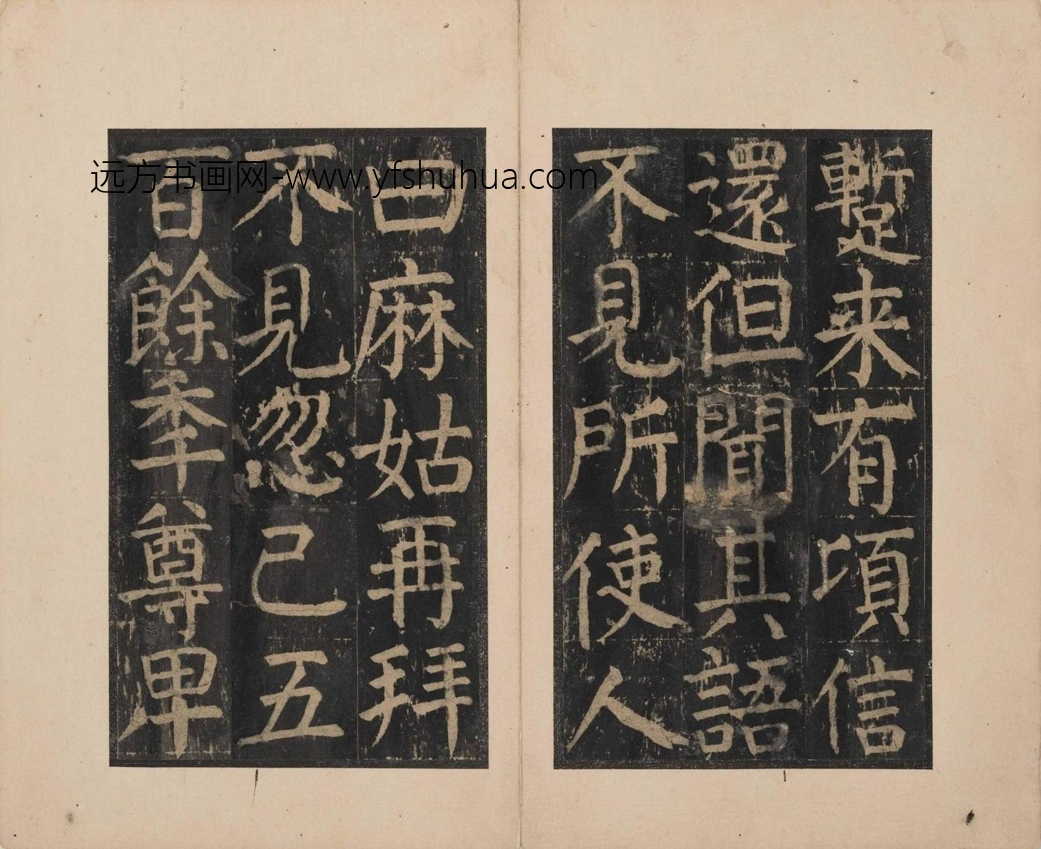 暫来有項信
還但聞其語
不見所使人
曰麻姑再拜
不見忽已五
百餘年尊卑
远方书画网-www.yfshuhua.com